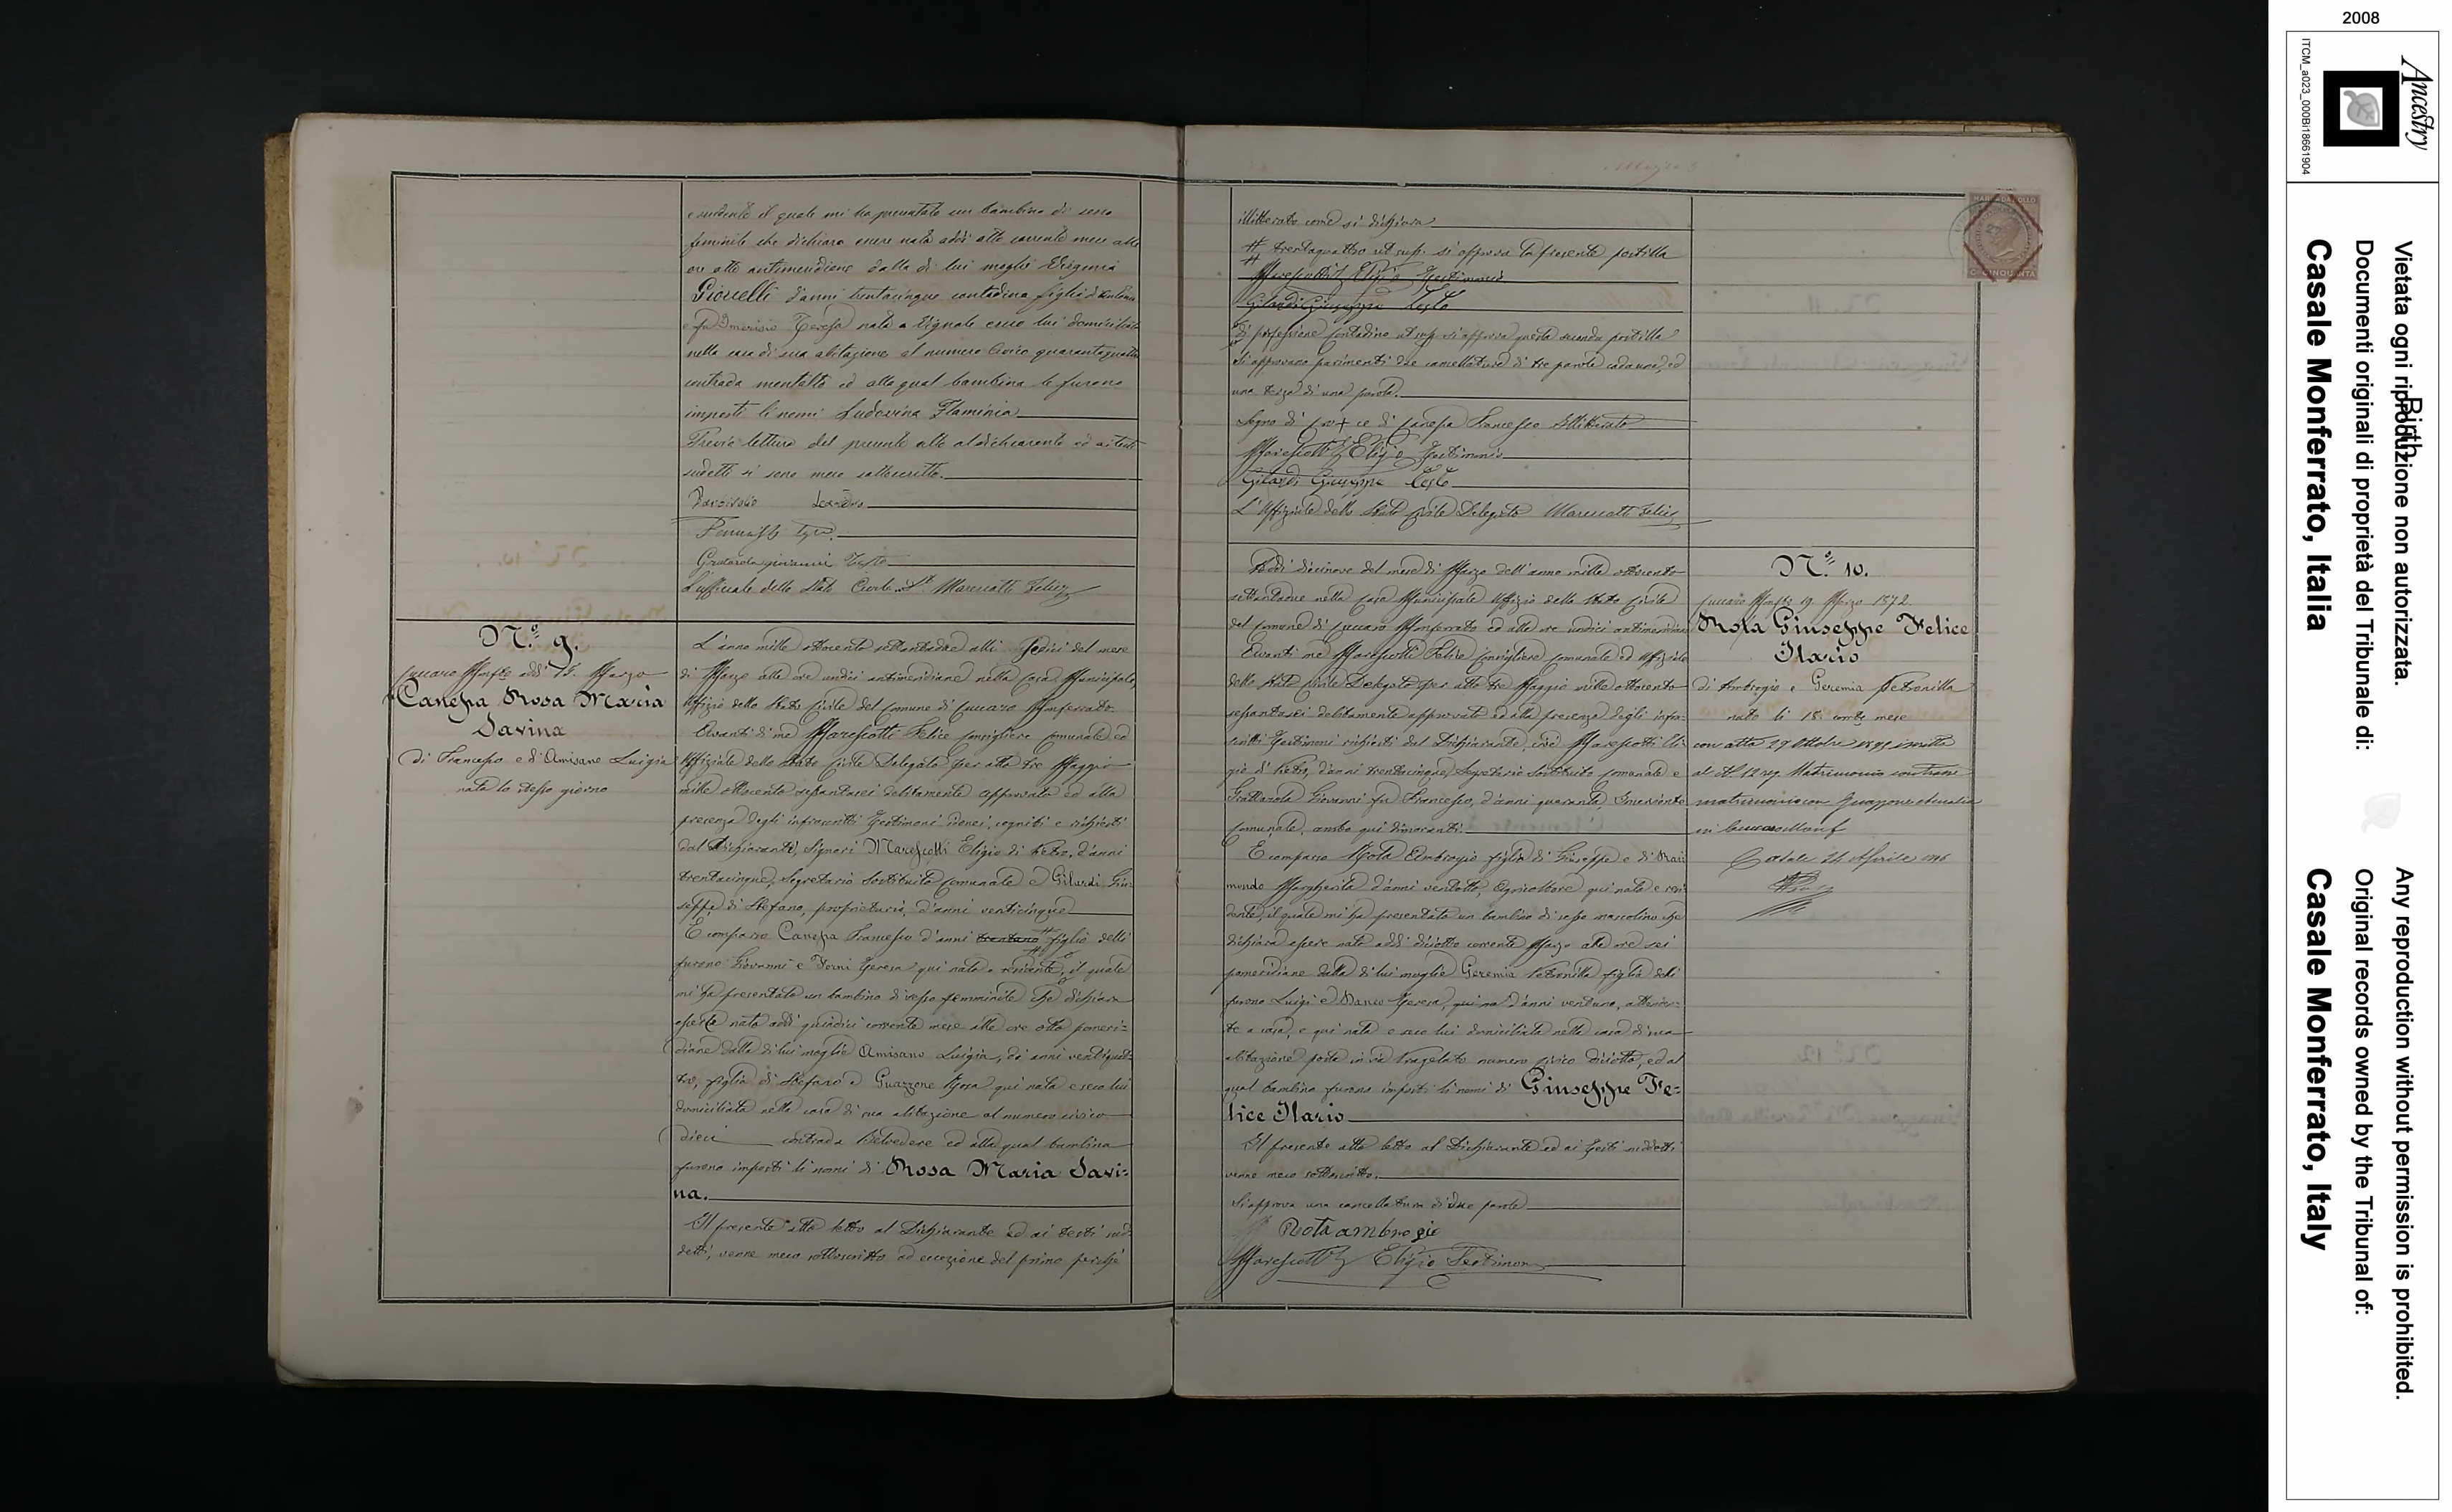 residente il quale mi ha presentato un bambino di sesso
feminile che dichiara essere nata addì otto corrente mese alle
ore otto antimeridiane dalla di lui moglie Virginia
Giovelli d'anni trentacinque contadina figlia d'Antonio
e fu Teresa nata a Vignale e seco lui domiciliata
nella casa di sua abitazione al numero Civico quarantaquattro
contrada montalto ed alla qual bambina le furono
imposti li nomi Ludovina Flaminia
Previa lettura del presente atto al dichiarante ed ai testi
sudetti si sono meco sottoscritto.
Grattarola giovanni Teste
L'uffiziale dello Stato Civile Marescotti Felice
N.° 9.
Cuccaro Monfto addì 15. Marzo
Canepa Rosa Maria
Savina
di Francesco e di Amisano Luigia
nata lo stesso giorno
L'anno mille ottocento settantadue alli Sedici del mese
di Marzo alle ore undici antimeridiane nella Casa Municipale,
Uffizio dello Stato Civile del Comune di Cuccaro Monferrato
Avanti di me Marescotti Felice Consigliere Comunale ed
Uffiziale dello Stato Civile Delegato per atto tre Maggio
mille ottocento sessantasei debitamente approvato ed alla
presenza degli infrascritti Testimoni idonei, cogniti e richiesti
dal Dichiarante, Signori Marescotti Eligio di Pietro, d'anni
trentacinque, Segretario Sostituito Comunale e Gilardi Giu-
seppe di Stefano, proprietario, d'anni venticinque
È comparso Canepa Francesco d'anni trentano # figlio delli
furono Giovanni e Teresa qui nato e residente, il quale
mi ha presentato un bambino di sesso femminile che dichiara
essere nata addì quindici corrente mese alle ore otto pomeri=
diane dalla di lui moglie Amisano Luigia, di anni ventiquat=
tro, figlia di Stefano e Guazzone Rosa qui nata e seco lui
domiciliata nella casa di sua abitazione al numero civico
dieci contrada Belvedere ed alla qual bambina
furono imposti li nomi di Rosa Maria Savi=
na.
Il presente atto letto al Dichiarante ed ai testi sud=
detti, venne meco sottoscritto ad eccezione del primo perchè
illitterato come si dichiara
# trentaquattro ut sup. si approva la presente postilla
Marescotti Eligio Testimonio
Gilardi Giuseppe Teste
di professione Contadino ut sup. si approva questa seconda postilla
Si approvano parimenti due cancellature di tre parole caduna, ed
una terza di una parola.
Segno di cro + ce di Canepa Francesco Illitterato
Marescotti Eligio Testimonio
Gilardi Giuseppe Teste
L'Uffiziale dello Stato Civile Delegato Marescotti Felice
Addì diecinove del mese di Marzo dell'anno mille ottocento
settantadue nella Casa Municipale Uffizio dello Stato Civile
del Comune di Cuccaro Monferrato ed alle ore undici antimeridiane
Avanti me Marescotti Felice Consigliere Comunale ed Uffiziale
dello Stato Civile Delegato per atto tre Maggio mille ottocento
sessantasei debitamente approvato ed alla presenza degli infra-
scritti Testimoni richiesti dal Dichiarante, cioè Marescotti Eli-
gio di Pietro, d'anni trentacinque, Segretario Sostituito Comunale e
Grattarola Giovanni fu Francesco, d'anni quaranta, Inserviente
Comunale, ambo qui dimoranti.
È comparso Rota Ambrogio figlio di Giuseppe e di Rai
mondo Margherita d'anni ventotto, Agricoltore qui nato e resi
dente, il quale mi ha presentato un bambino di sesso mascolino che
dichiara essere nato addì diciotto corrente Marzo alle ore sei
pomeridiane dalla di lui moglie Geremia Petronilla figlia delli
furono Luigi e Teresa, qui na d'anni ventuno, attenden=
te a casa, e qui nata e seco lui domiciliata nella casa di sua
abitazione posta in via numero civico diciotto, ed al
qual bambino furono imposti li nomi di Giuseppe Fe=
lice Ilario
Il presente atto letto al Dichiarante ed ai Testi suddetti
venne meco sottoscritto.
Si approva una cancellatura di due parole
Rota ambrogio
Marescotti Eligio Testimonio
N.° 10.
Cuccaro Monfto 19. Marzo 1872.
Rota Giuseppe Felice
Ilario
di Ambrogio e Geremia Petronilla
nato li 18. corrte mese
con atto 27 Ottobre iscritto
al N. 12 reg. Matrimonio contrasse
matrimonio con Guazzone
in Cuccaro Monf
Casale 24 Aprile
MARCA DA BOLLO
C. CINQUANTA
2008
Ancestry
ITCM_a023_000Bi18661904
Birth
Vietata ogni riproduzione non autorizzata.
Documenti originali di proprietà del Tribunale di:
Casale Monferrato, Italia
Any reproduction without permission is prohibited.
Original records owned by the Tribunal of:
Casale Monferrato, Italy